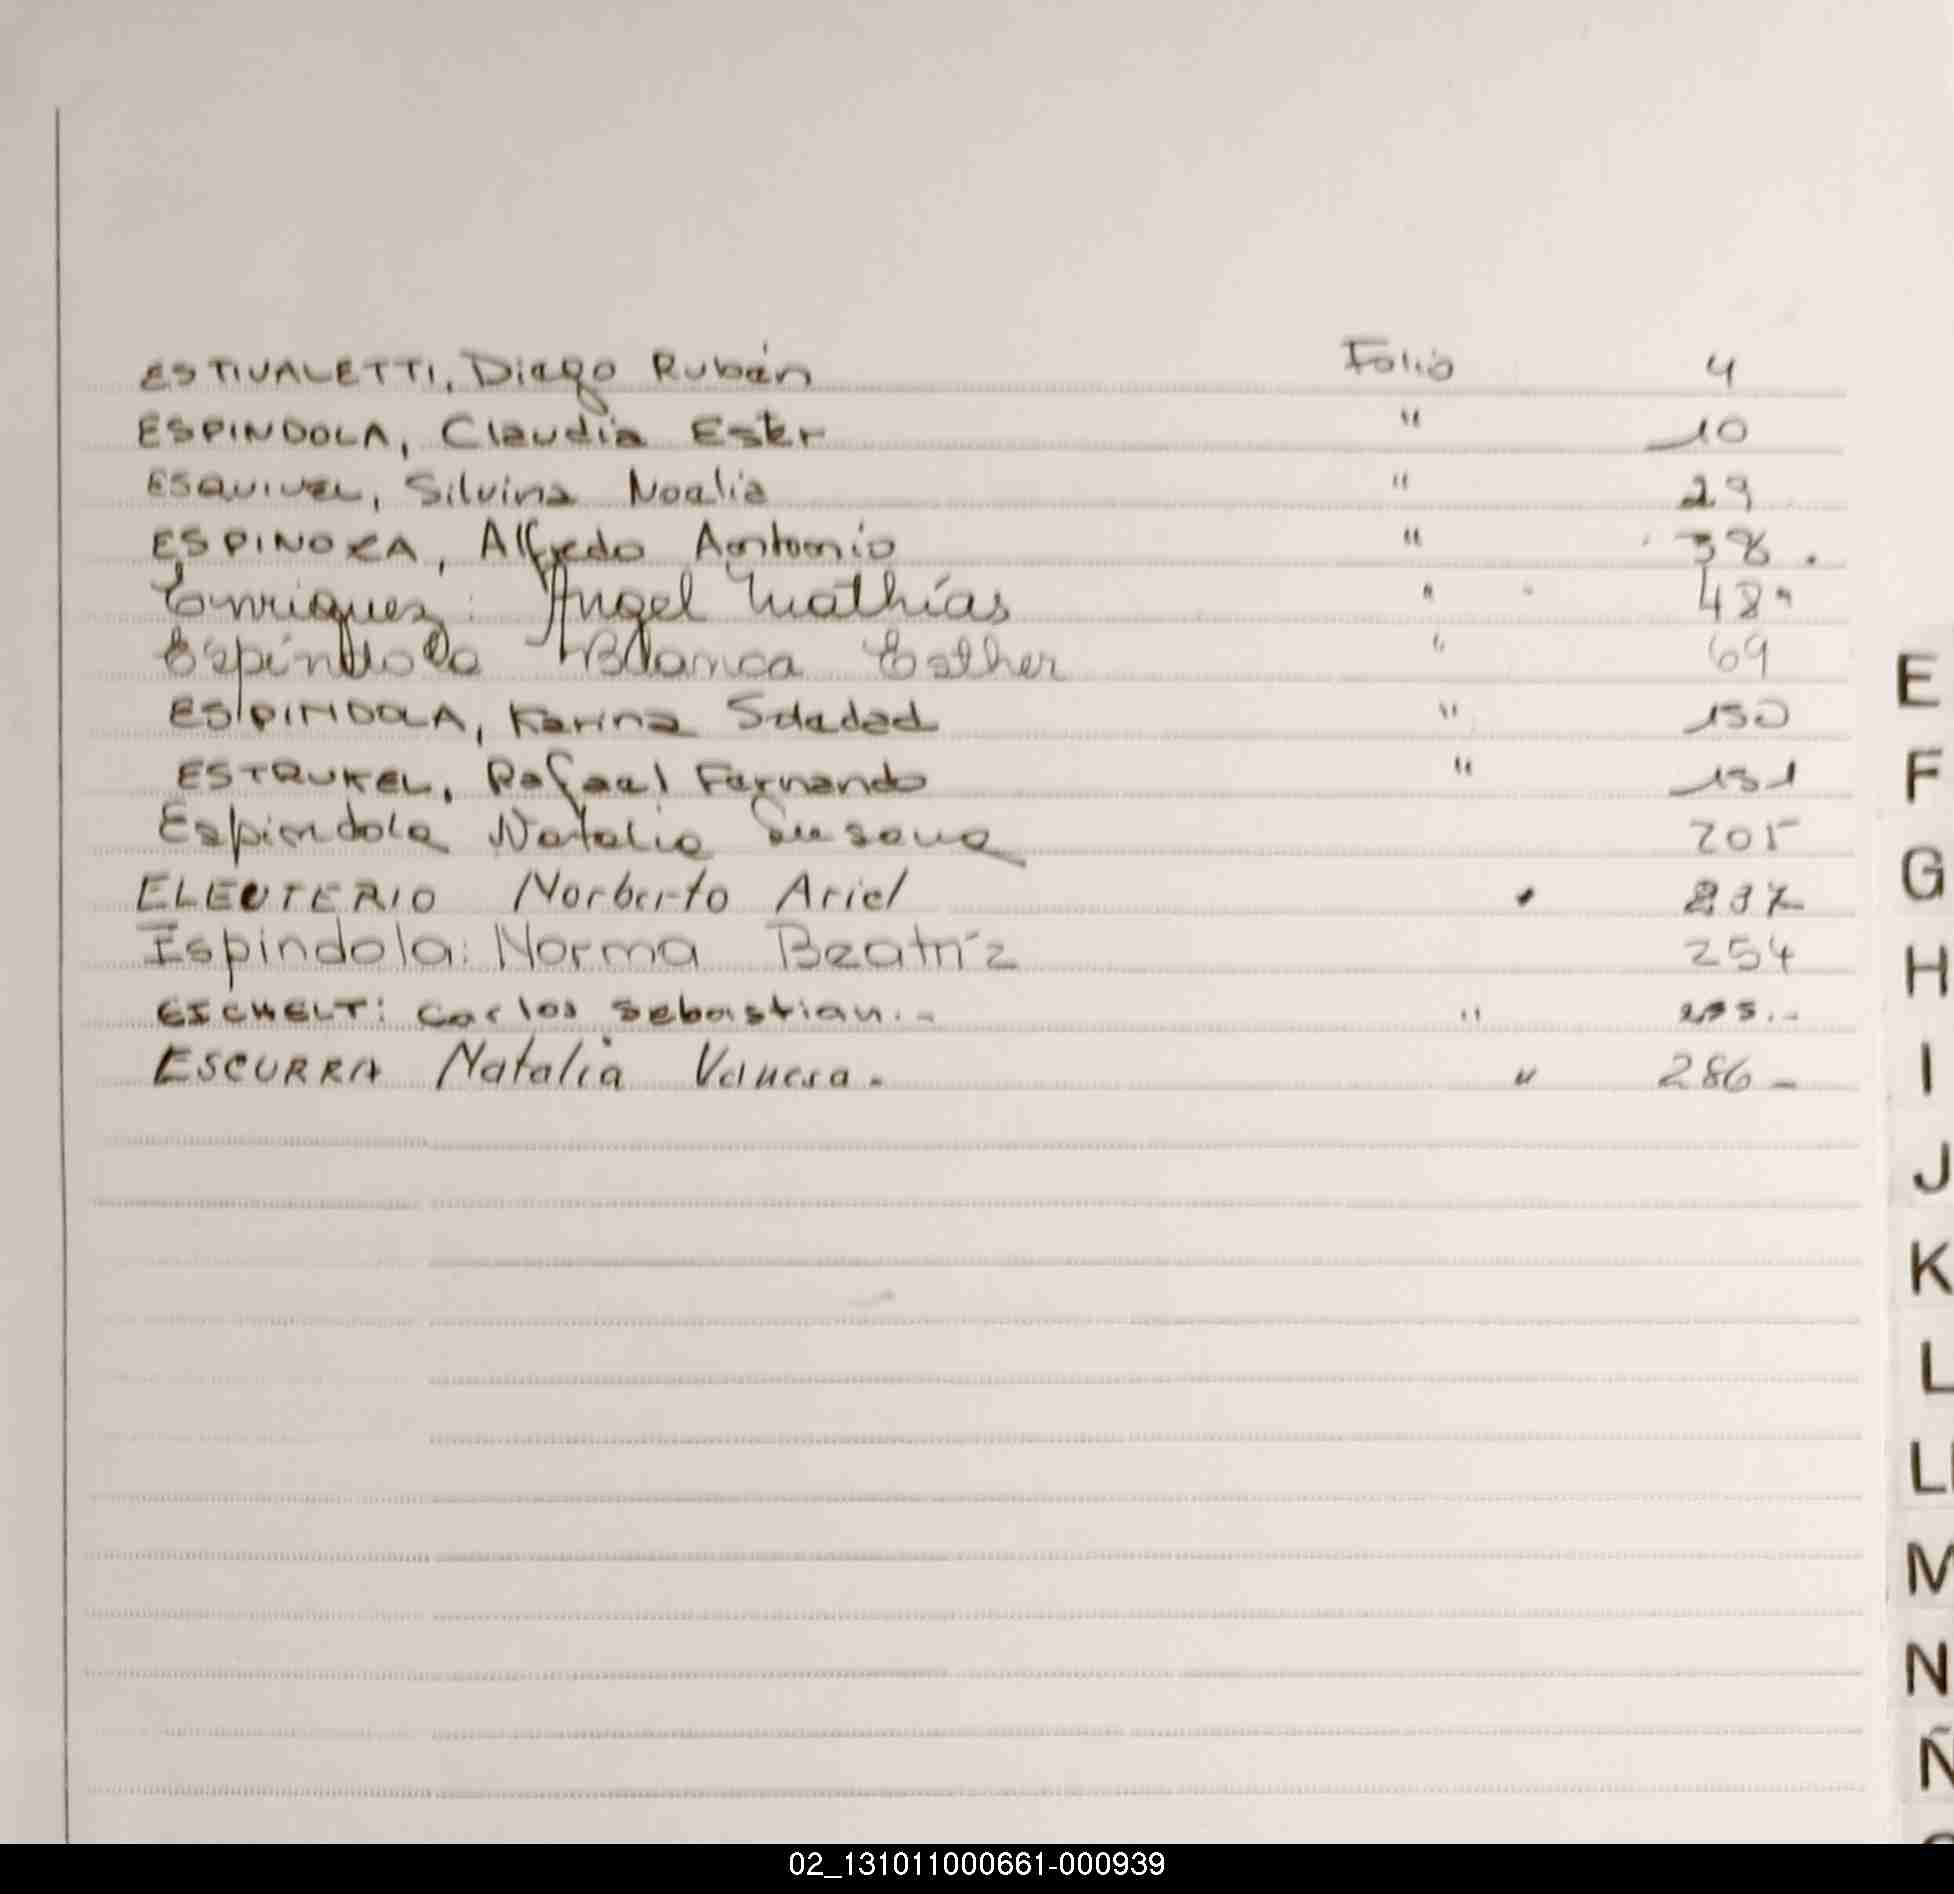 ESTIVALETTI, Diego Rubén Folio 4
ESPINDOLA, Claudia Ester " 10
ESQUIVEL, Silvina Noelia " 29
ESPINOZA, Alfredo Antonio " 38.
Enriquez: Angel Mathías " 48"
Espíndola Blanca Esther " 69
ESPINDOLA, Karina Soledad " 150
ESTRUKEL, Rafael Fernando " 151
Espindola Natalia Susana 205
ELEUTERIO Norberto Ariel 237
Espindola: Norma Beatríz 254
EICHELT: Carlos Sebastian.- "
ESCURRA Natalia Vanesa. " 286-
E
F
G
H
I
J
K
L
LL
M
N
Ñ
02_131011000661-000939